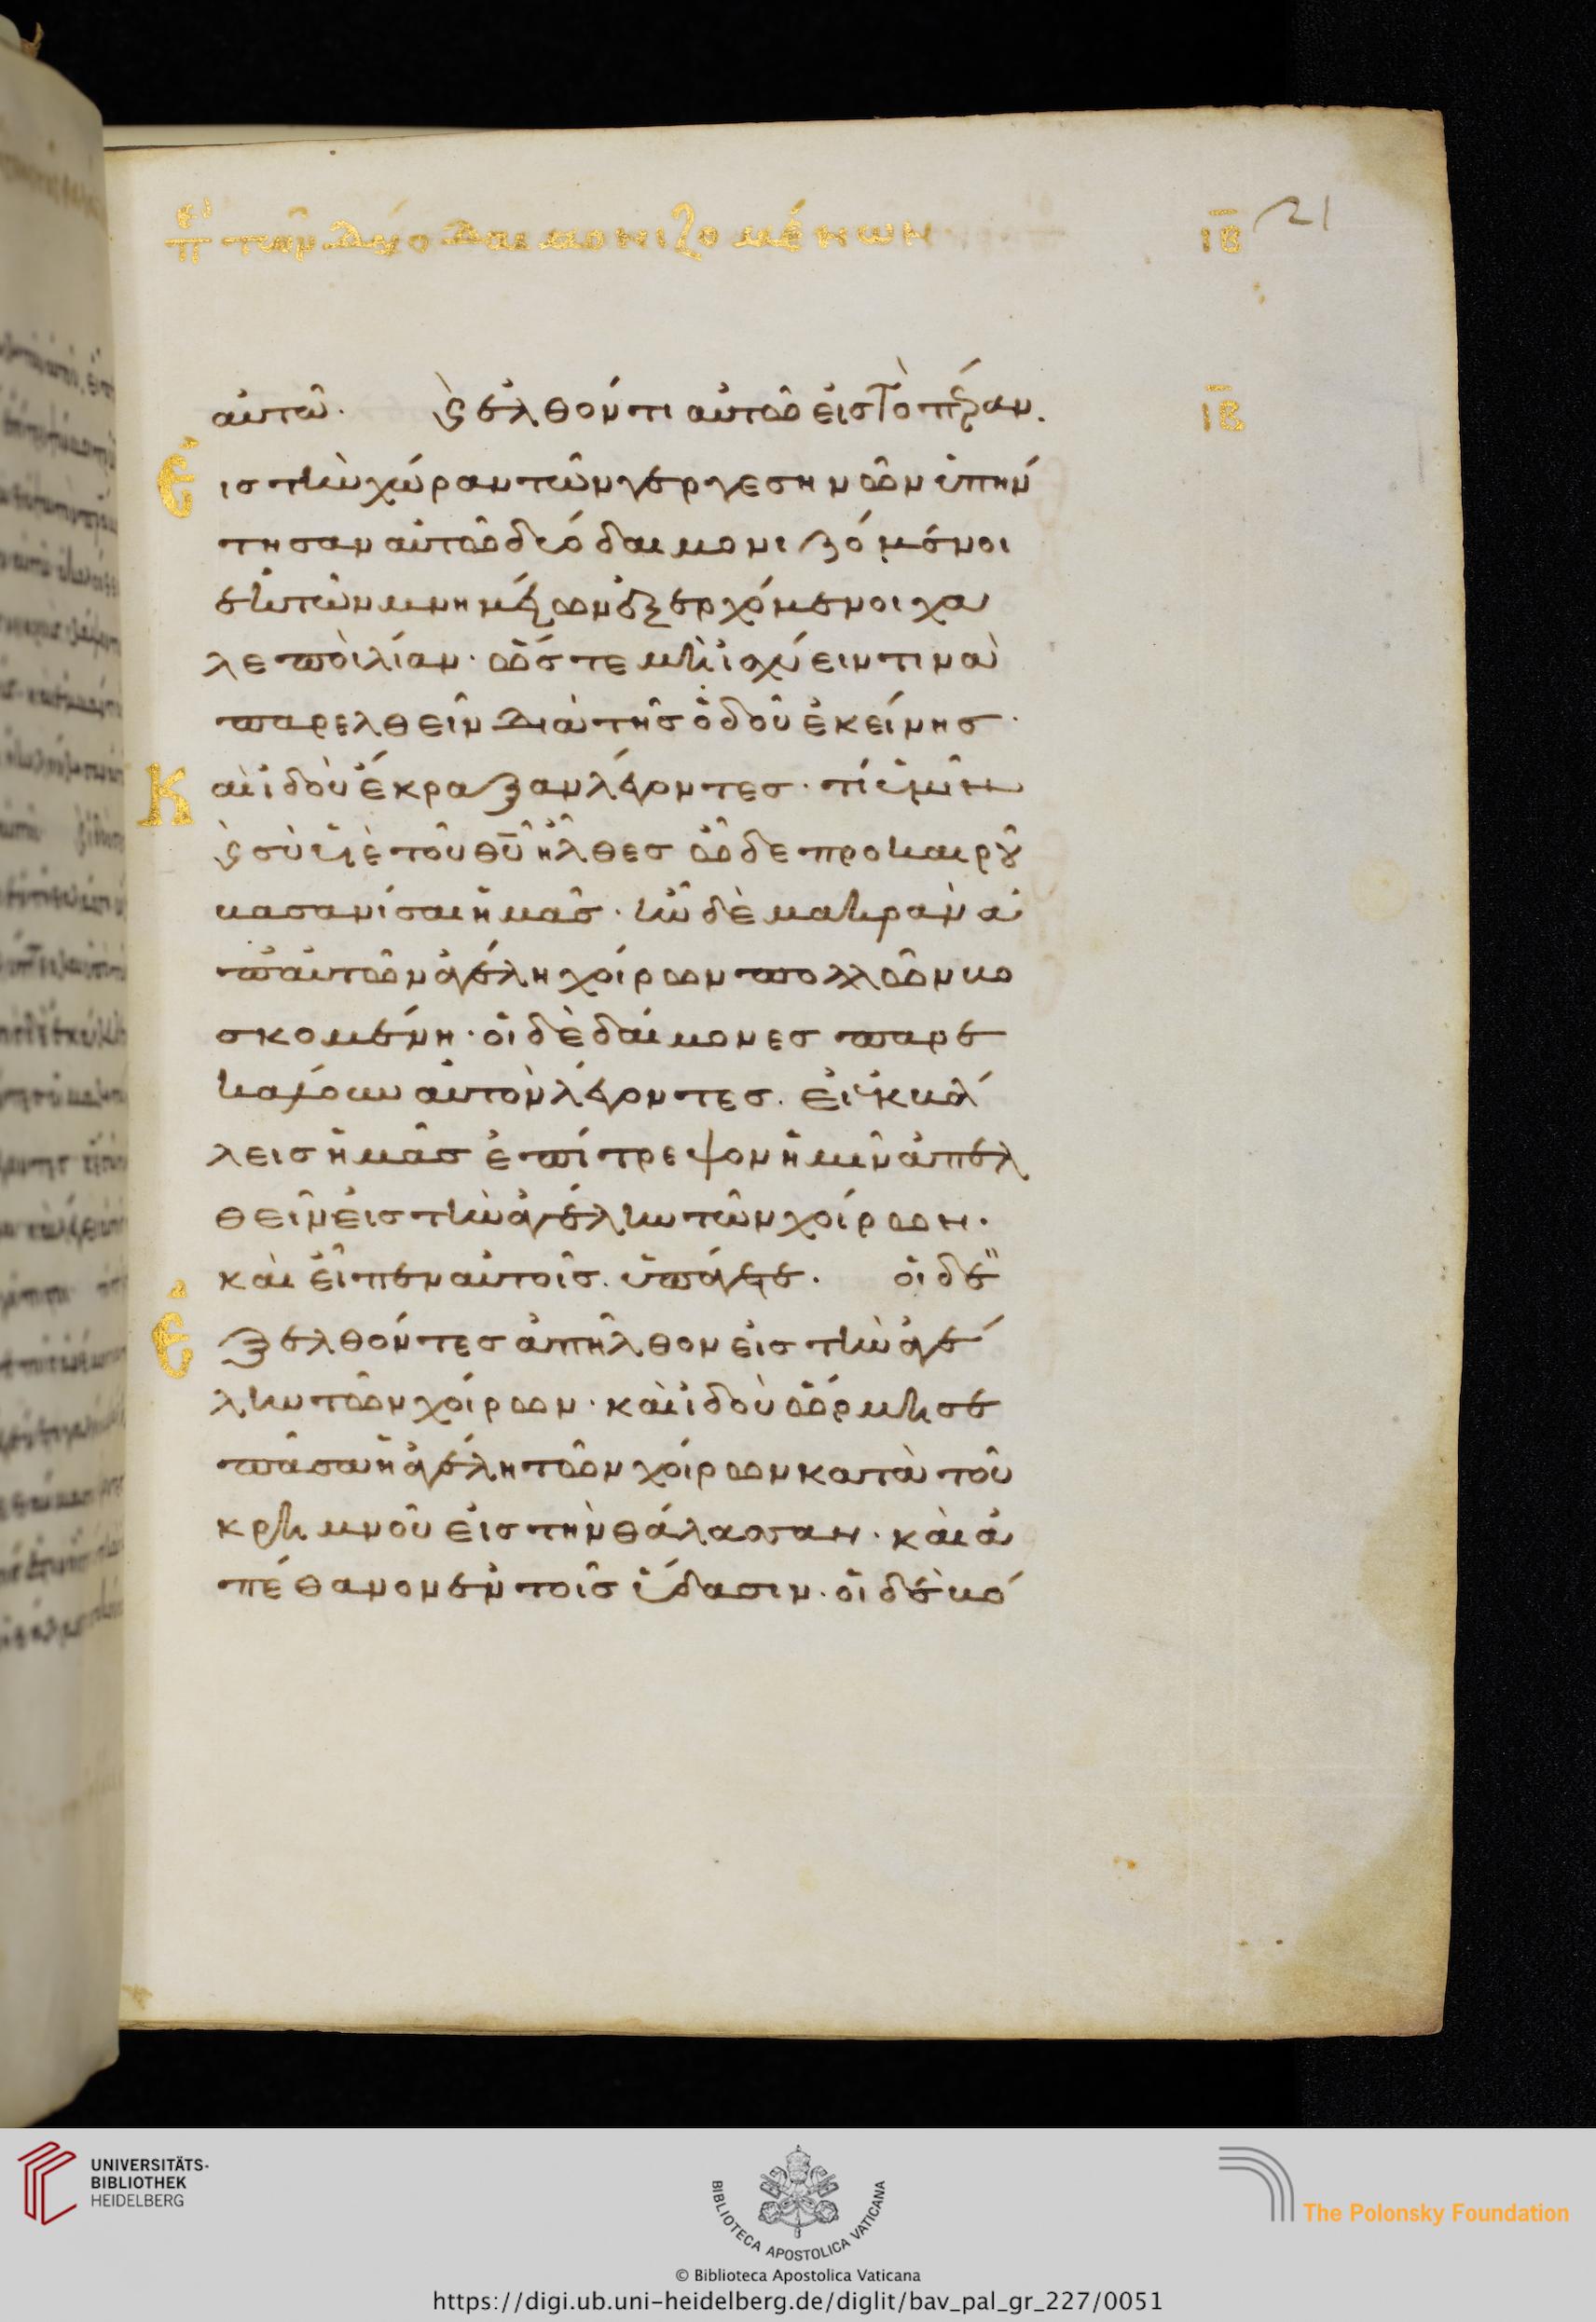 πε̅ρ τῶν δύο δαιμονιζομένων ιβ 21
αὐτῶ. ϗ ἐλθόντι αὐτῶ εἰς τὸ πέραν. ιβ
Εἰς τὴν χώραν τῶν γεργεσηνῶν ὑπήν
τησαν αὐτῶ δύο δαιμονιζόμενοι
ἐκ τῶν μνημείων ἐξερχόμενοι χα
λεποὶ λίαν· ὥστε μὴ ἰσχύειν τινὰ
παρελθεῖν διὰ τῆς ὁδοῦ ἐκείνης·
Καὶ ἰδοὺ ἔκραξαν λέγοντες· τί ἡμῖν
ϗ σὺ υἱὲ τοῦ θ̅υ̅ ἦλθες ὧδε προ καιροῦ
βασανίσαι ἡμᾶς· ἦν δὲ μακρὰν ἀ
π' αὐτῶν ἀγέλη χοίρων πολλῶν βο
σκομένη· οἱ δὲ δαίμονες παρε
κάλουν αὐτὸν λέγοντες. εἰ ἐκβάλ
λεις ἡμᾶς ἐπίτρεψον ἡμῖν ἀπελ
θεῖν εἰς τὴν ἀγέλην τῶν χοίρων.
καὶ εἶπεν αὐτοῖς. ὑπάγετε. οἱ δὲ
Ἐξελθόντες ἀπῆλθον εἰς τὴν ἀγέ
λην τῶν χοίρων· καὶ ἰδοὺ ὥρμησε
πᾶσα ἡ ἀγέλη τῶν χοίρων κατὰ τοῦ
κρημνοῦ εἰς τὴν θάλασσαν· καὶ ἀ
πέθανον ἐν τοῖς ὕδασιν. οἱ δὲ βό
UNIVERSITÄTS-
BIBLIOTHEK
HEIDELBERG
BIBLIOTECA APOSTOLICA VATICANA
The Polonsky Foundation
© Biblioteca Apostolica Vaticana
https://digi.ub.uni-heidelberg.de/diglit/bav_pal_gr_227/0051